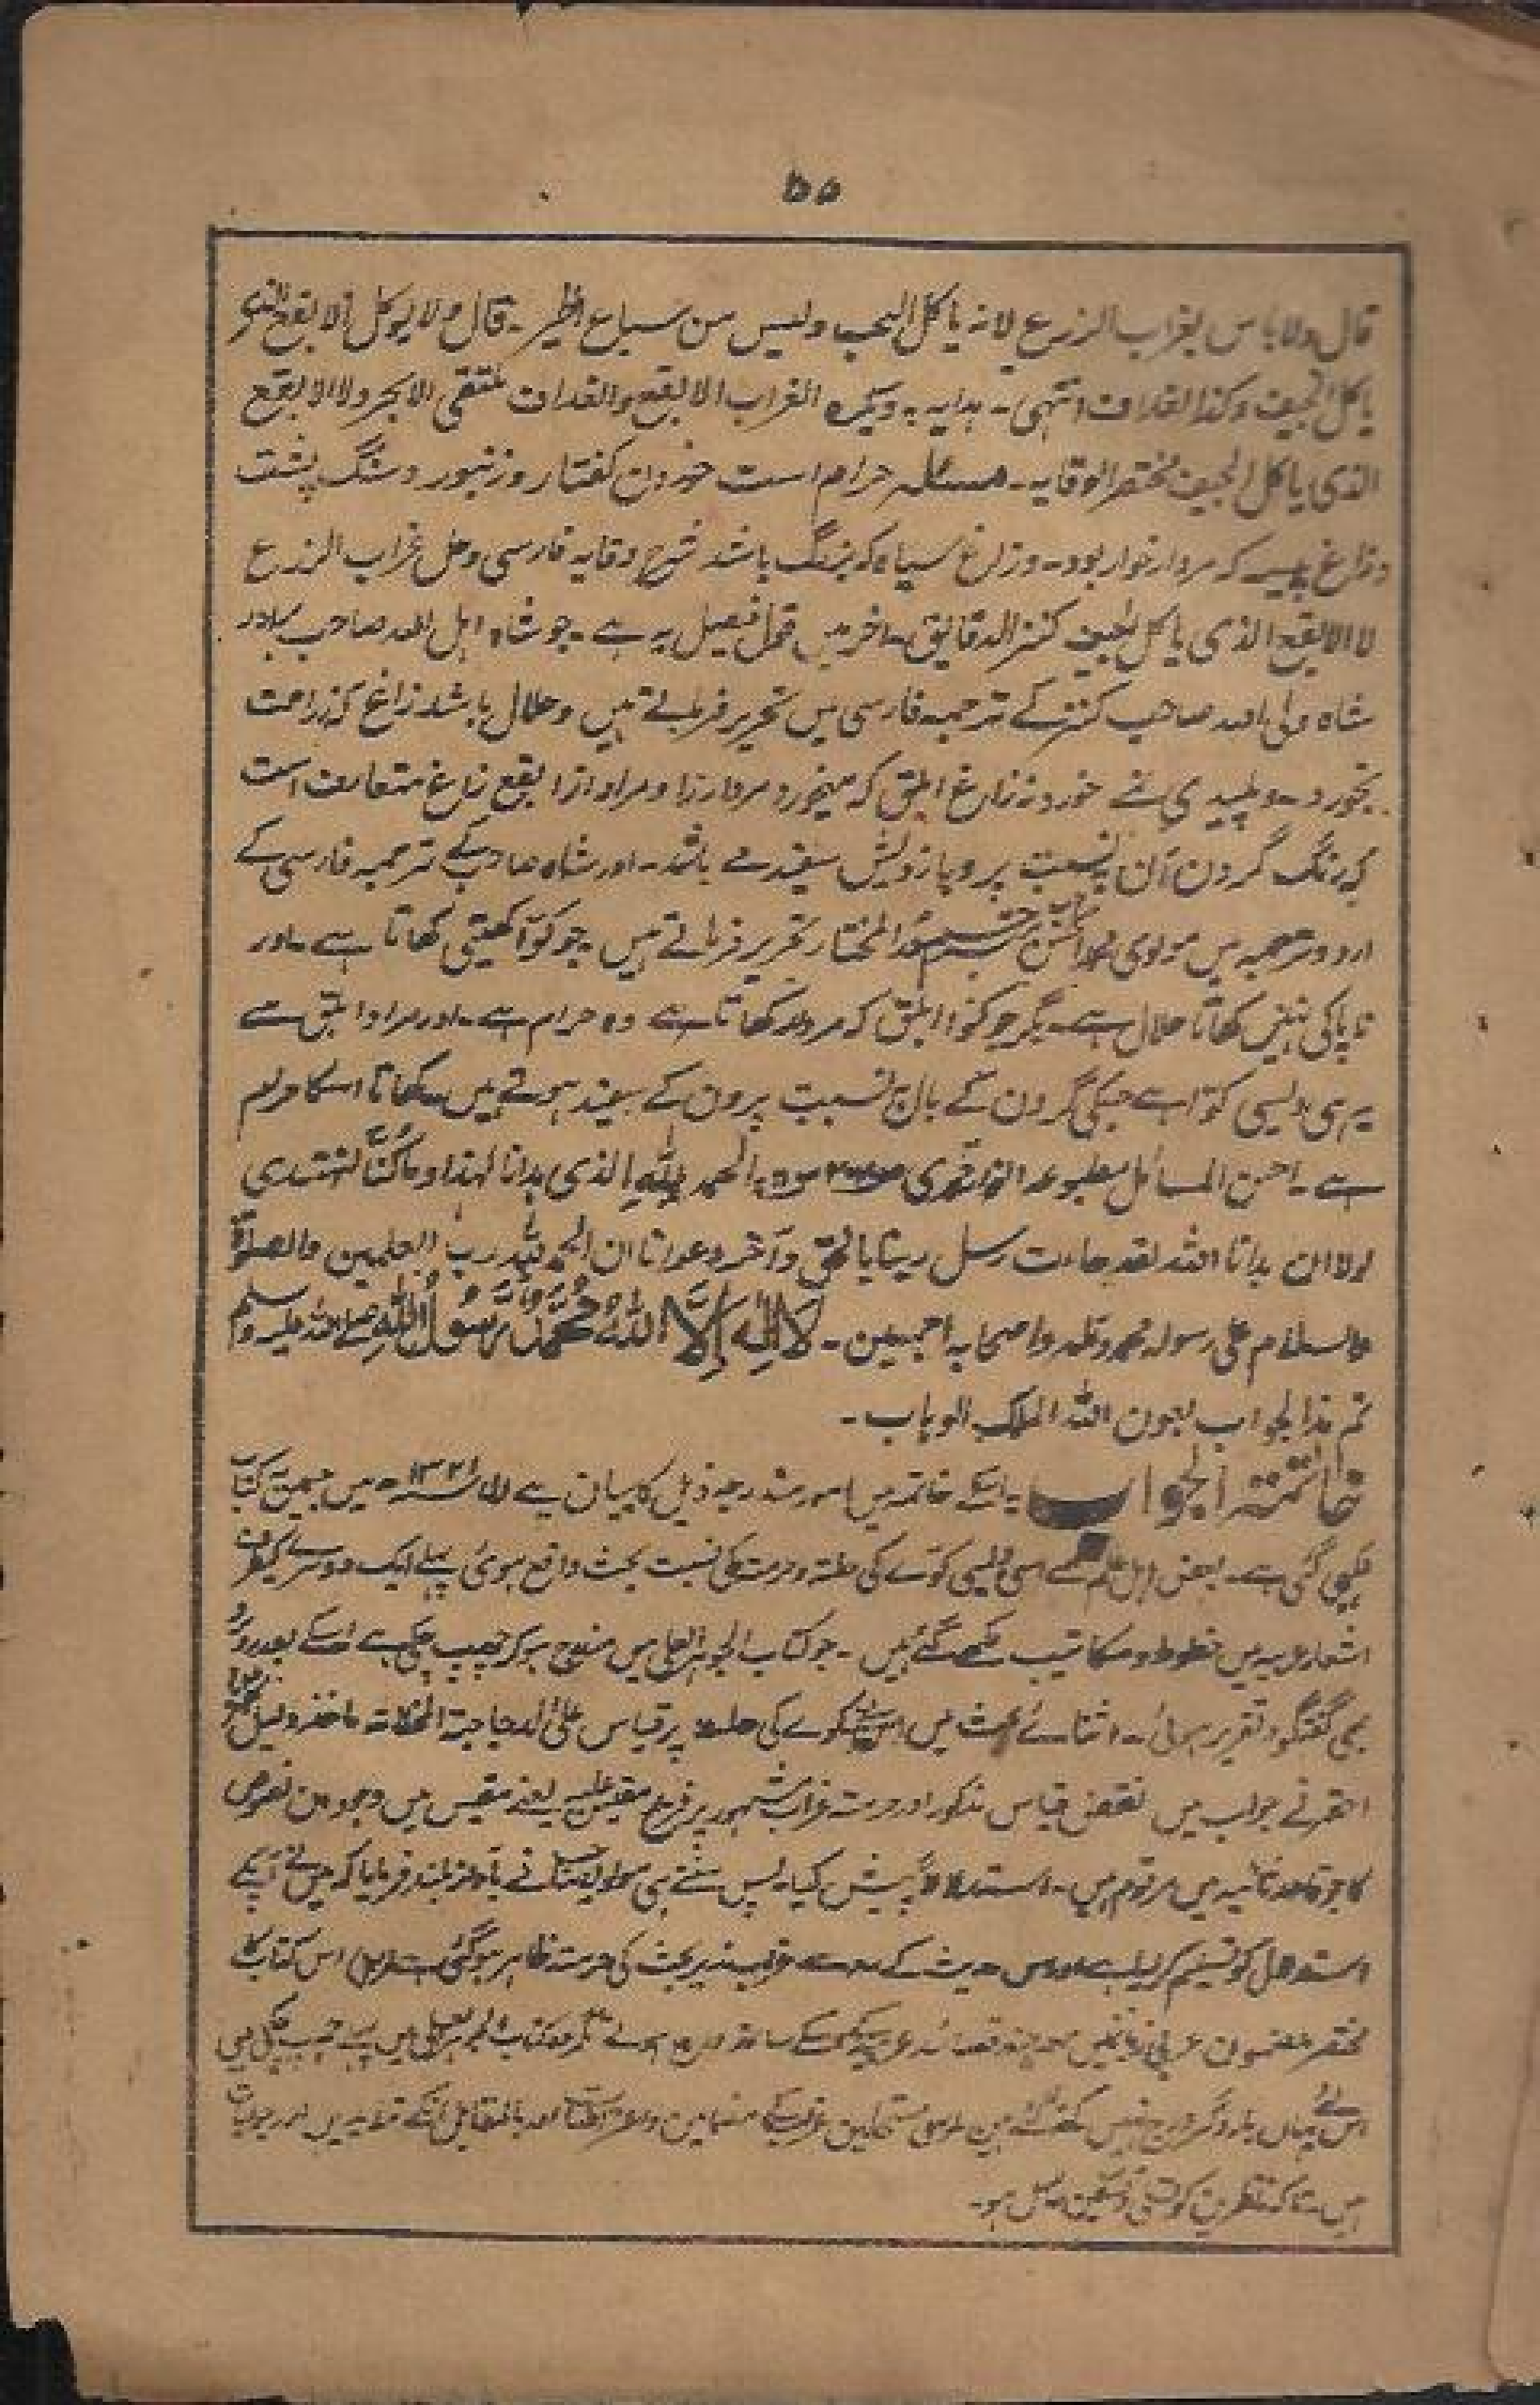 ۵۵
قال ولا باس بغراب الزرع لانہ یاکل الحب ولیس من سباع الطیر۔ قال ولا یوکل الابقع الذی
یاکل الجیف وکذا الغداف انتہی۔ ہدایہ۔ ویکرہ الغراب الابقع والغداف ملتقی الابحر ولا الابقع
الذی یاکل الجیف مختصر الوقایہ۔ مسئلہ حرام است خوردن کفتار و زنبور و سنگ پشت
و زاغ پلیسہ کہ مردار خوار بود۔ و زاغ سیاہ کہ بزرگ باشد شرح وقایہ فارسی وحل غراب الزرع
لا الابقع الذی یاکل الجیف کنز الدقایق۔ اخر میں قول فیصل یہ ہے۔ جو شاہ اہل اللہ صاحب برادر
شاہ ولی اللہ صاحب کنز کے ترجمہ فارسی میں تحریر فرماتے ہیں وحلال باشد زاغ کہ زراعت
بخورد۔ و پلیدی نے خورد نہ زاغ ابلق کہ میخورد مردار را و مراد از ابقع زاغ متعارف است
کہ رنگ گردن آن بہ نسبت پر و بازویش سفید مے باشد۔ اور شاہ صاحب کے ترجمہ فارسی کے
اردو ترجمہ میں مولوی محمد احسن صاحب المختار تحریر فرماتے ہیں۔ جو کوّا کھیتی کھاتا ہے۔ اور
ناپاکی نہیں کھاتا حلال ہے۔ مگر جو کوّا ابلق کہ مردار کھاتا ہے وہ حرام ہے۔ اور مراد ابلق سے
یہی دیسی کوّا ہے جسکی گردن کے بال بہ نسبت پرون کے سفید ہوتے ہیں۔ کھانا اسکا حرام
ہے۔ احسن المسائل مطبوعہ الحمد للہ الذی ہدانا لہذا وما کُنّا لنہتدی
لولا ان ہدانا اللہ لقد جاءت رسل ربنا بالحق وآخر دعوانا ان الحمد للہ رب العلمین والصلوٰۃ
والسلام علی رسولہ محمد وآلہ واصحابہ اجمعین۔ لَا اِلٰہَ اِلَّا اللّٰہُ مُحَمَّدٌ رَّسُوْلُ اللّٰہِ صلے اللہ علیہ وسلم
تم ہذا الجواب بعون اللہ الملک الوہاب۔
خاتمتہ الجواب۔ اسکے خاتمہ میں امور مندرجہ ذیل کا بیان ہے ۱۳۲۱ میں جسمیں کتاب
لکھی گئی ہے۔ بعض اہل علم سے اسی دیسی کوّے کی حلۃ و حرمت کی نسبت بحث واقع ہوئی پہلے ایک دوسرے کیطرف
اشعار عربیہ میں خطوط و مکاتیب لکھے گئے ہیں۔ جو کتاب میں مندرج ہو کر چھپ چکی ہے اسکے بعد
بھی گفتگو و تقریر ہوئی۔ اثنائے بحث میں کوے کی حلت پر قیاس علی الدجاجۃ المخلاۃ ماخذ و دلیل
احقر نے جواب میں نقض قیاس مذکور اور حرمۃ غراب مشہور پر فرع مقیس علیہ یعنے مقیس میں وجود نصوص
کا جو قاعدہ ثانیہ میں مرقوم ہیں۔ استدلالاً پیش کیا۔ پس سنتے ہی مولوی صاحب نے بآواز بلند فرمایا کہ میں نے آپکے
استدلال کو تسلیم کر لیا ہے اور اس حدیث کے غراب زیر بحث کی حرمتہ ظاہر ہوگئی اس کتاب کا
مختصر مضمون عربی زبان میں معہ چند قصائد عربیہ کے ساتھ میں چھپ چکی ہیں
اس لئے یہاں بار دگر درج نہیں کئے گئے مضامین و اور جوابات
ہیں۔ تاکہ ناظرین کو تسلی و یقین حاصل ہو۔